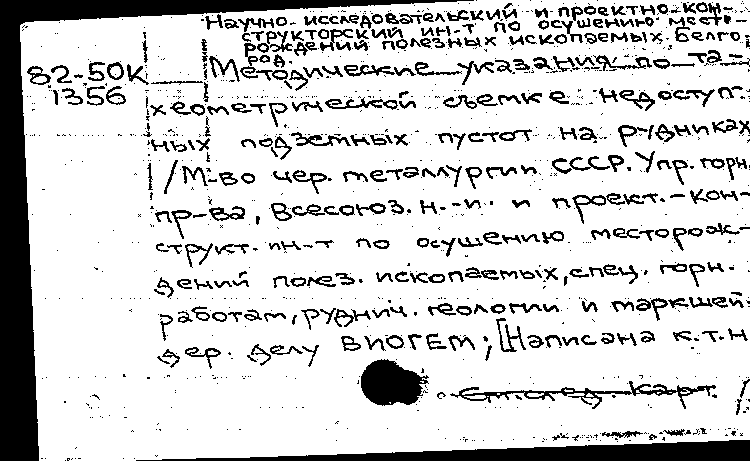 Научно-исследовательский и проектно-кон-
структорский ин-т по осушению место-
рождений полезных ископаемых. Белго-
род.
82-50К
1356
Методические указания по та-
хеометрической съемке недоступ-
ных подземных пустот на рудниках
/М-во чер. металлургии СССР. Упр. горн.
пр-ва, Всесоюз. н.-и. и проект.-кон-
структ. ин-т по осушению месторож-
дений полез. ископаемых, спец. горн.
работам, руднич. геологии и маркшей-
дер. делу ВИОГЕМ; [Написана к.т.н
См. след. карт.